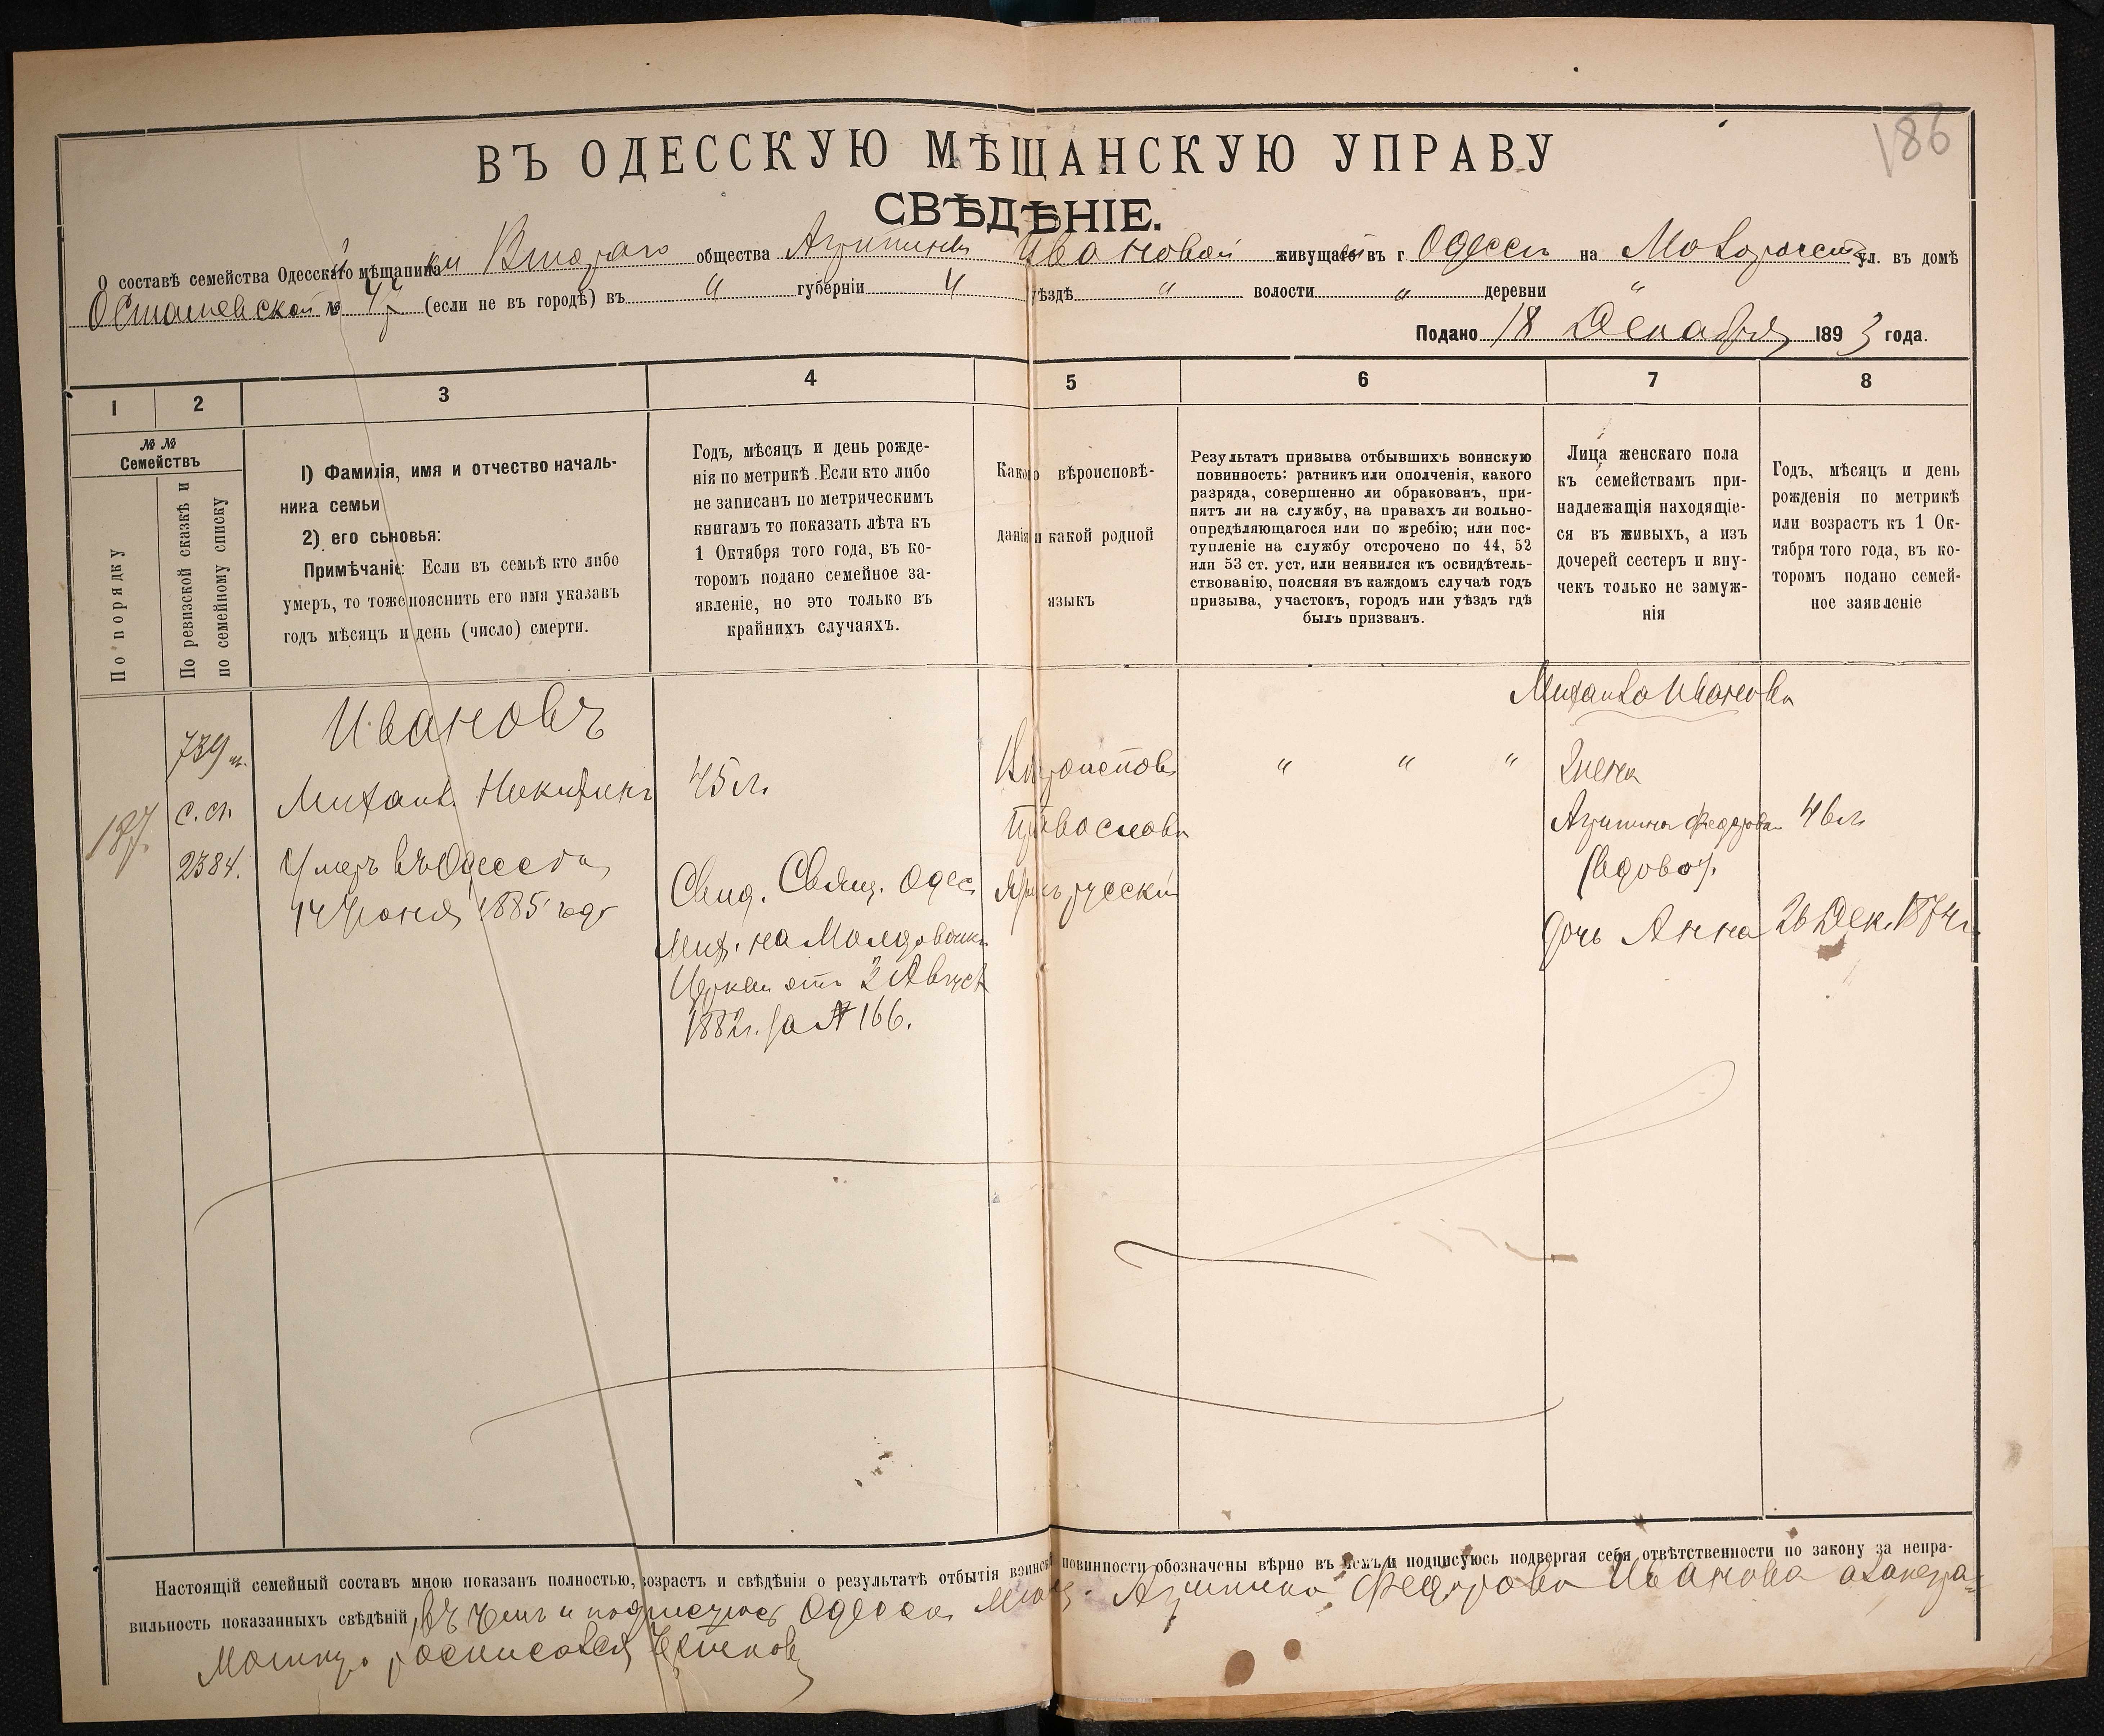 186
ВЪ ОДЕССКУЮ МѢЩАНСКУЮ УПРАВУ
СВѢДѢНІЕ.
О составѣ семейства Одесскаго мѣщанина ки Втораго общества Агрипины Ивановой живущей въ г. Одессѣ на ул. въ домѣ
№ 47 (если не въ городѣ) въ " губерніи " уѣздѣ " волости " деревни "
Подано 18 Декабря 1893 года.
1 2 3 4 5 6 7 8
№ № Семействъ
По порядку
По ревизской сказкѣ и по семейному списку
1) Фамилія, имя и отчество началь-
ника семьи
2) его сыновья:
Примѣчаніе: Если въ семьѣ кто либо
умеръ, то тоже пояснить его имя указавъ
годъ мѣсяцъ и день (число) смерти.
Годъ, мѣсяцъ и день рожде-
нія по метрикѣ. Если кто либо
не записанъ по метрическимъ
книгамъ то показать лѣта къ
1 Октября того года, въ ко-
торомъ подано семейное за-
явленіе, но это только въ
крайнихъ случаяхъ.
Какого вѣроисповѣ-
данія и какой родной
языкъ
Результатъ призыва отбывшихъ воинскую
повинность: ратникъ или ополченія, какого
разряда, совершенно ли обракованъ, при-
нятъ ли на службу, на правахъ ли вольно-
опредѣляющагося или по жребію; или пос-
тупленіе на службу отсрочено по 44, 52
или 53 ст. уст, или неявился къ освидѣтель-
ствованію, поясняя въ каждомъ случаѣ годъ
призыва, участокъ, городъ или уѣздъ гдѣ
былъ призванъ.
Лица женскаго пола
къ семействамъ при-
надлежащія находящіе-
ся въ живыхъ, а изъ
дочерей сестеръ и вну-
чекъ только не замуж-
нія
Годъ, мѣсяцъ и день
рожденія по метрикѣ
или возрастъ къ 1 Ок-
тября того года, въ ко-
торомъ подано семей-
ное заявленіе
187.
739
с. сп.
2384.
Ивановъ
Михаилъ Никифиръ
Умеръ въ Одессѣ
14 Іюня 1885 года
45 л.
Свид. Свящ. Одес
Мих. на Молдованкѣ
Церкви отъ 2 Август
1882 г. за № 166.
Вѣроисповѣ
православн
языкъ русскій
" " "
Михаила Иванова
Жена
Агрипина Федорова 46 л.
(вдова).
дочь Анна 26 Дек. 1874 г.
Настоящій семейный составъ мною показанъ полностью, возрастъ и свѣдѣнія о результатѣ отбытія воинской повинности обозначены вѣрно въ чемъ и подписуюсь подвергая себя отвѣтственности по закону за непра-
вильность показанныхъ свѣдѣній, въ чемъ и подписуюсь Одесск. Мѣщ. Агрипина Федорова Иванова а за негра-
мотную росписался